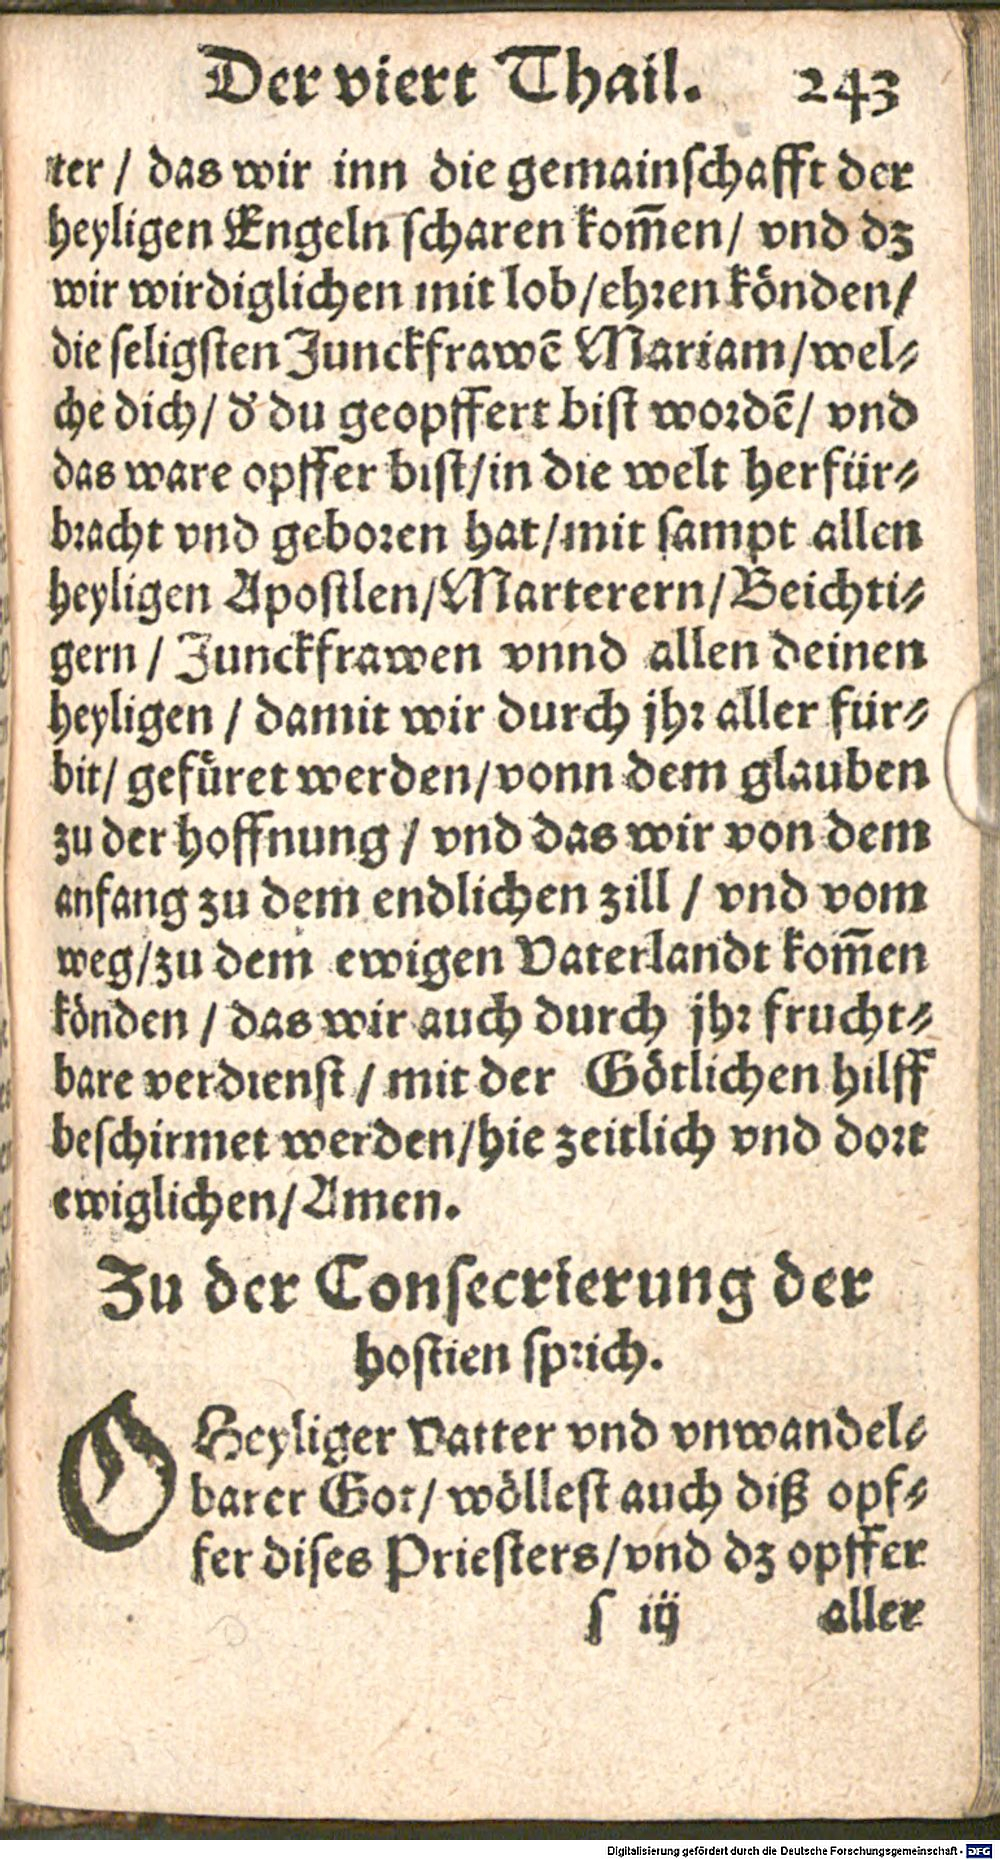 Der viert Thail. 243
ter / das wir inn die gemainschafft der
heyligen Engeln scharen kom̃en / vnd dz
wir wirdiglichen mit lob / ehren könden /
die seligsten Junckfrawē Mariam / wel⸗
che dich / d̕ du geopffert bist wordē / vnd
das ware opffer bist / in die welt herfür⸗
bracht vnd geboren hat / mit sampt allen
heyligen Apostlen / Marterern / Beichti⸗
gern / Junckfrawen vnnd allen deinen
heyligen / damit wir durch jhr aller für⸗
bit / gefüret werden / vonn dem glauben
zu der hoffnung / vnd das wir von dem
anfang zu dem endlichen zill / vnd vom
weg / zu dem ewigen Vaterlandt kom̃en
könden / das wir auch durch jhr frucht⸗
bare verdienst / mit der Götlichen hilff
beschirmet werden / hie zeitlich vnd dort
ewiglichen / Amen.
Zu der Consecrierung der
hostien sprich.
O Heyliger Vatter vnd vnwandel⸗
barer Got / wöllest auch diß opf⸗
fer dises Priesters / vnd dz opffer
s iij aller
Digitalisierung gefördert durch die Deutsche Forschungsgemeinschaft - DFG